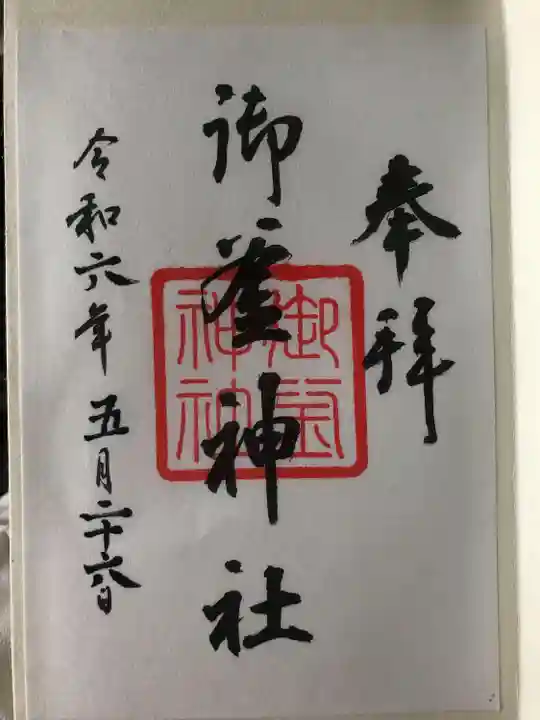 奉拝
御釜神社
御釜
神社
令和六年五月二十六日